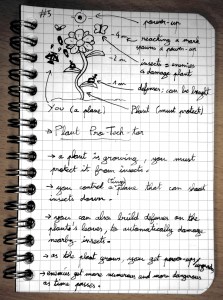 #5
power-up
4m
reaching a mark
spawns a power-up
2m
insects = enemies
damage plant
1m
defense: can be bought
You (a plane)
Plant (must protect)
Plant Pro Tech-tor
→ a plant is growing, you must
protect it from insects.
→ you control a tiny plane that can shoot
insects down.
→ you can also build defenses on the
plant's leaves, to automatically damage
nearby insects.
→ as the plant grows, you get power-ups/
upgrades
→ enemies get more numerous and more dangerous
as time passes.